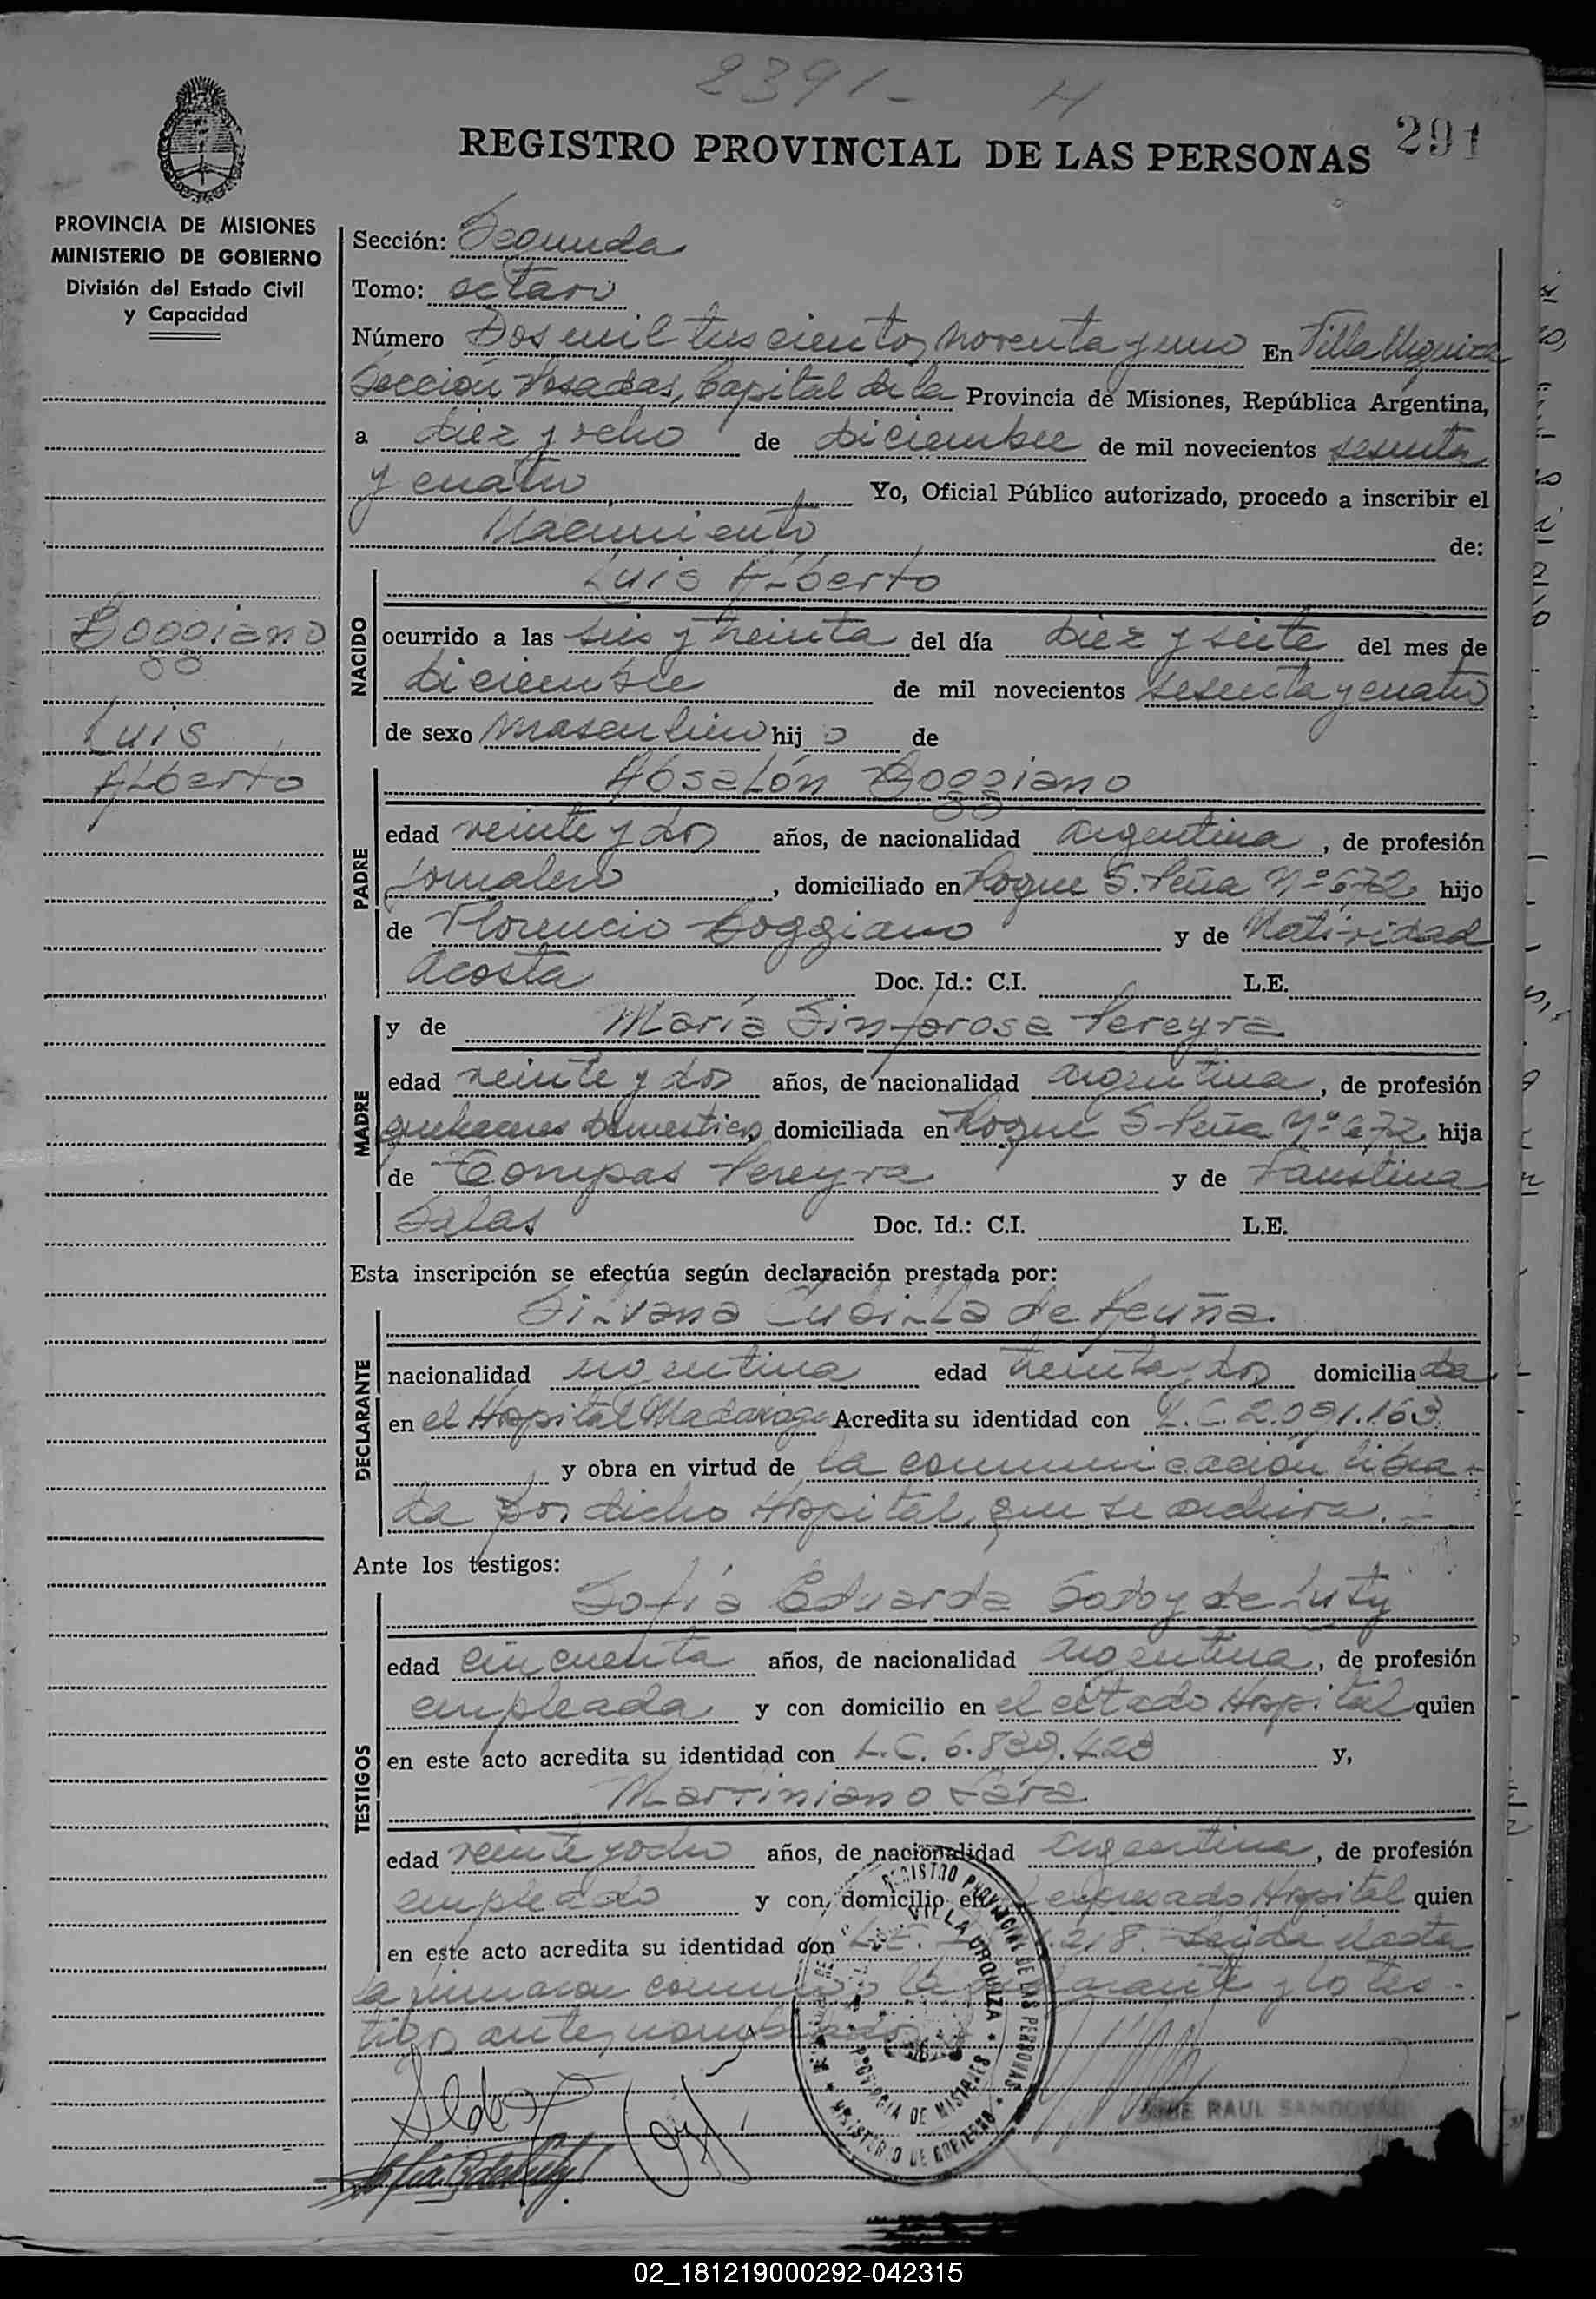 2391- H
291
REGISTRO PROVINCIAL DE LAS PERSONAS
PROVINCIA DE MISIONES
MINISTERIO DE GOBIERNO
División del Estado Civil
y Capacidad
Boggiano
Luis
Alberto
Sección: Segunda
Tomo: octavo
Número Dos mil trescientos noventa y uno En Villa Urquiza
Sección Posadas, Capital de la Provincia de Misiones, República Argentina,
a diez y ocho de diciembre de mil novecientos sesenta
y cuatro Yo, Oficial Público autorizado, procedo a inscribir el
Nacimiento de:
NACIDO
Luis Alberto
ocurrido a las seis y treinta del día diez y siete del mes de
diciembre de mil novecientos sesenta y cuatro
de sexo masculino hijo de
PADRE
Absalón Boggiano
edad veinte y dos años, de nacionalidad argentina, de profesión
jornalero, domiciliado en Roque S. Peña Nº 672 hijo
de Florencio Boggiano y de Natividad
Acosta Doc. Id.: C.I. L.E.
MADRE
y de María Sinforosa Pereyra
edad veinte y dos años, de nacionalidad argentina, de profesión
quehaceres domesticos domiciliada en Roque S. Peña Nº 672 hija
de Pereyra y de Faustina
Salas Doc. Id.: C.I. L.E.
Esta inscripción se efectúa según declaración prestada por:
DECLARANTE
Silvana Cubilla de
nacionalidad argentina edad treinta y dos domiciliada
en el Hospital Madariaga Acredita su identidad con L.C. 2.091.163
y obra en virtud de la comunicación libra-
da por dicho Hospital, que se archiva.-
Ante los testigos:
TESTIGOS
Sofía Eduarda Godoy de Luty
edad cincuenta años, de nacionalidad argentina, de profesión
empleada y con domicilio en el citado Hospital quien
en este acto acredita su identidad con L.C. 6.839.423 y,
Martiniano Lara
edad veinte y ocho años, de nacionalidad argentina, de profesión
empleado y con domicilio en expresado Hospital quien
en este acto acredita su identidad con L.E. 218. Leida el acta
la firmaron conmigo la declarante y los tes-
tigos antes nombrados
REGISTRO PROVINCIAL DE LAS PERSONAS
VILLA URQUIZA
PROVINCIA DE MISIONES
MINISTERIO DE GOBIERNO
JOSE RAUL SANDOVAL
02_181219000292-042315